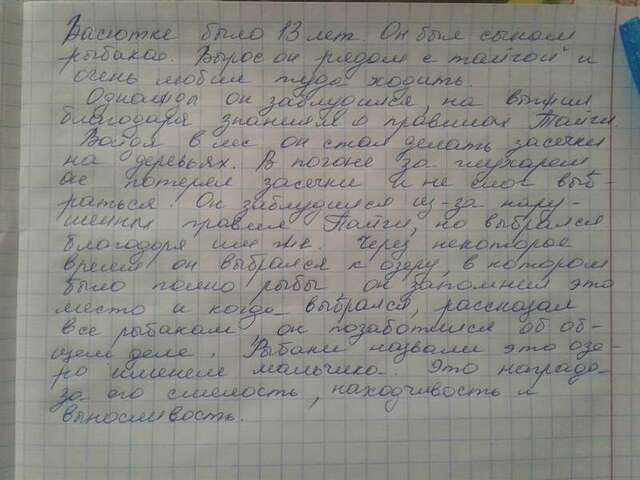 Васютке было 13 лет. Он был сыном
рыбака. Вырос он рядом с тайгой и
очень любил туда ходить.
Однажды он заблудился, но выжил
благодаря знаниям о правилах Тайги.
Войдя в лес он стал делать засечки
на деревьях. В погоне за глухарем
он потерял засечки и не смог выб-
раться. Он заблудился из-за нару-
шенных правил Тайги, но выбрался
благодаря им же. Через некоторое
время он выбрался к озеру, в котором
было полно рыбы он запомнил это
место и когда выбрался, рассказал
все рыбакам он позаботился об об-
щем деле. Рыбаки назвали это озе-
ро именем мальчика. Это награда
за его смелость, находчивость и
выносливость.